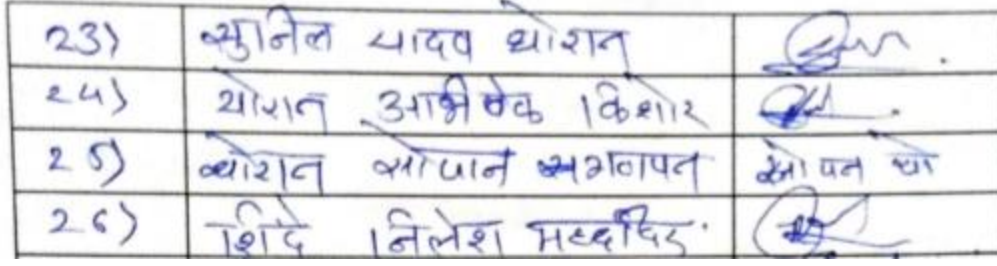 23) सुनिल यादव थोरात
24) थोरात अभिषेक किशोर
25) थोरात सोपान सोपन थो
26) शिंदे निलेश